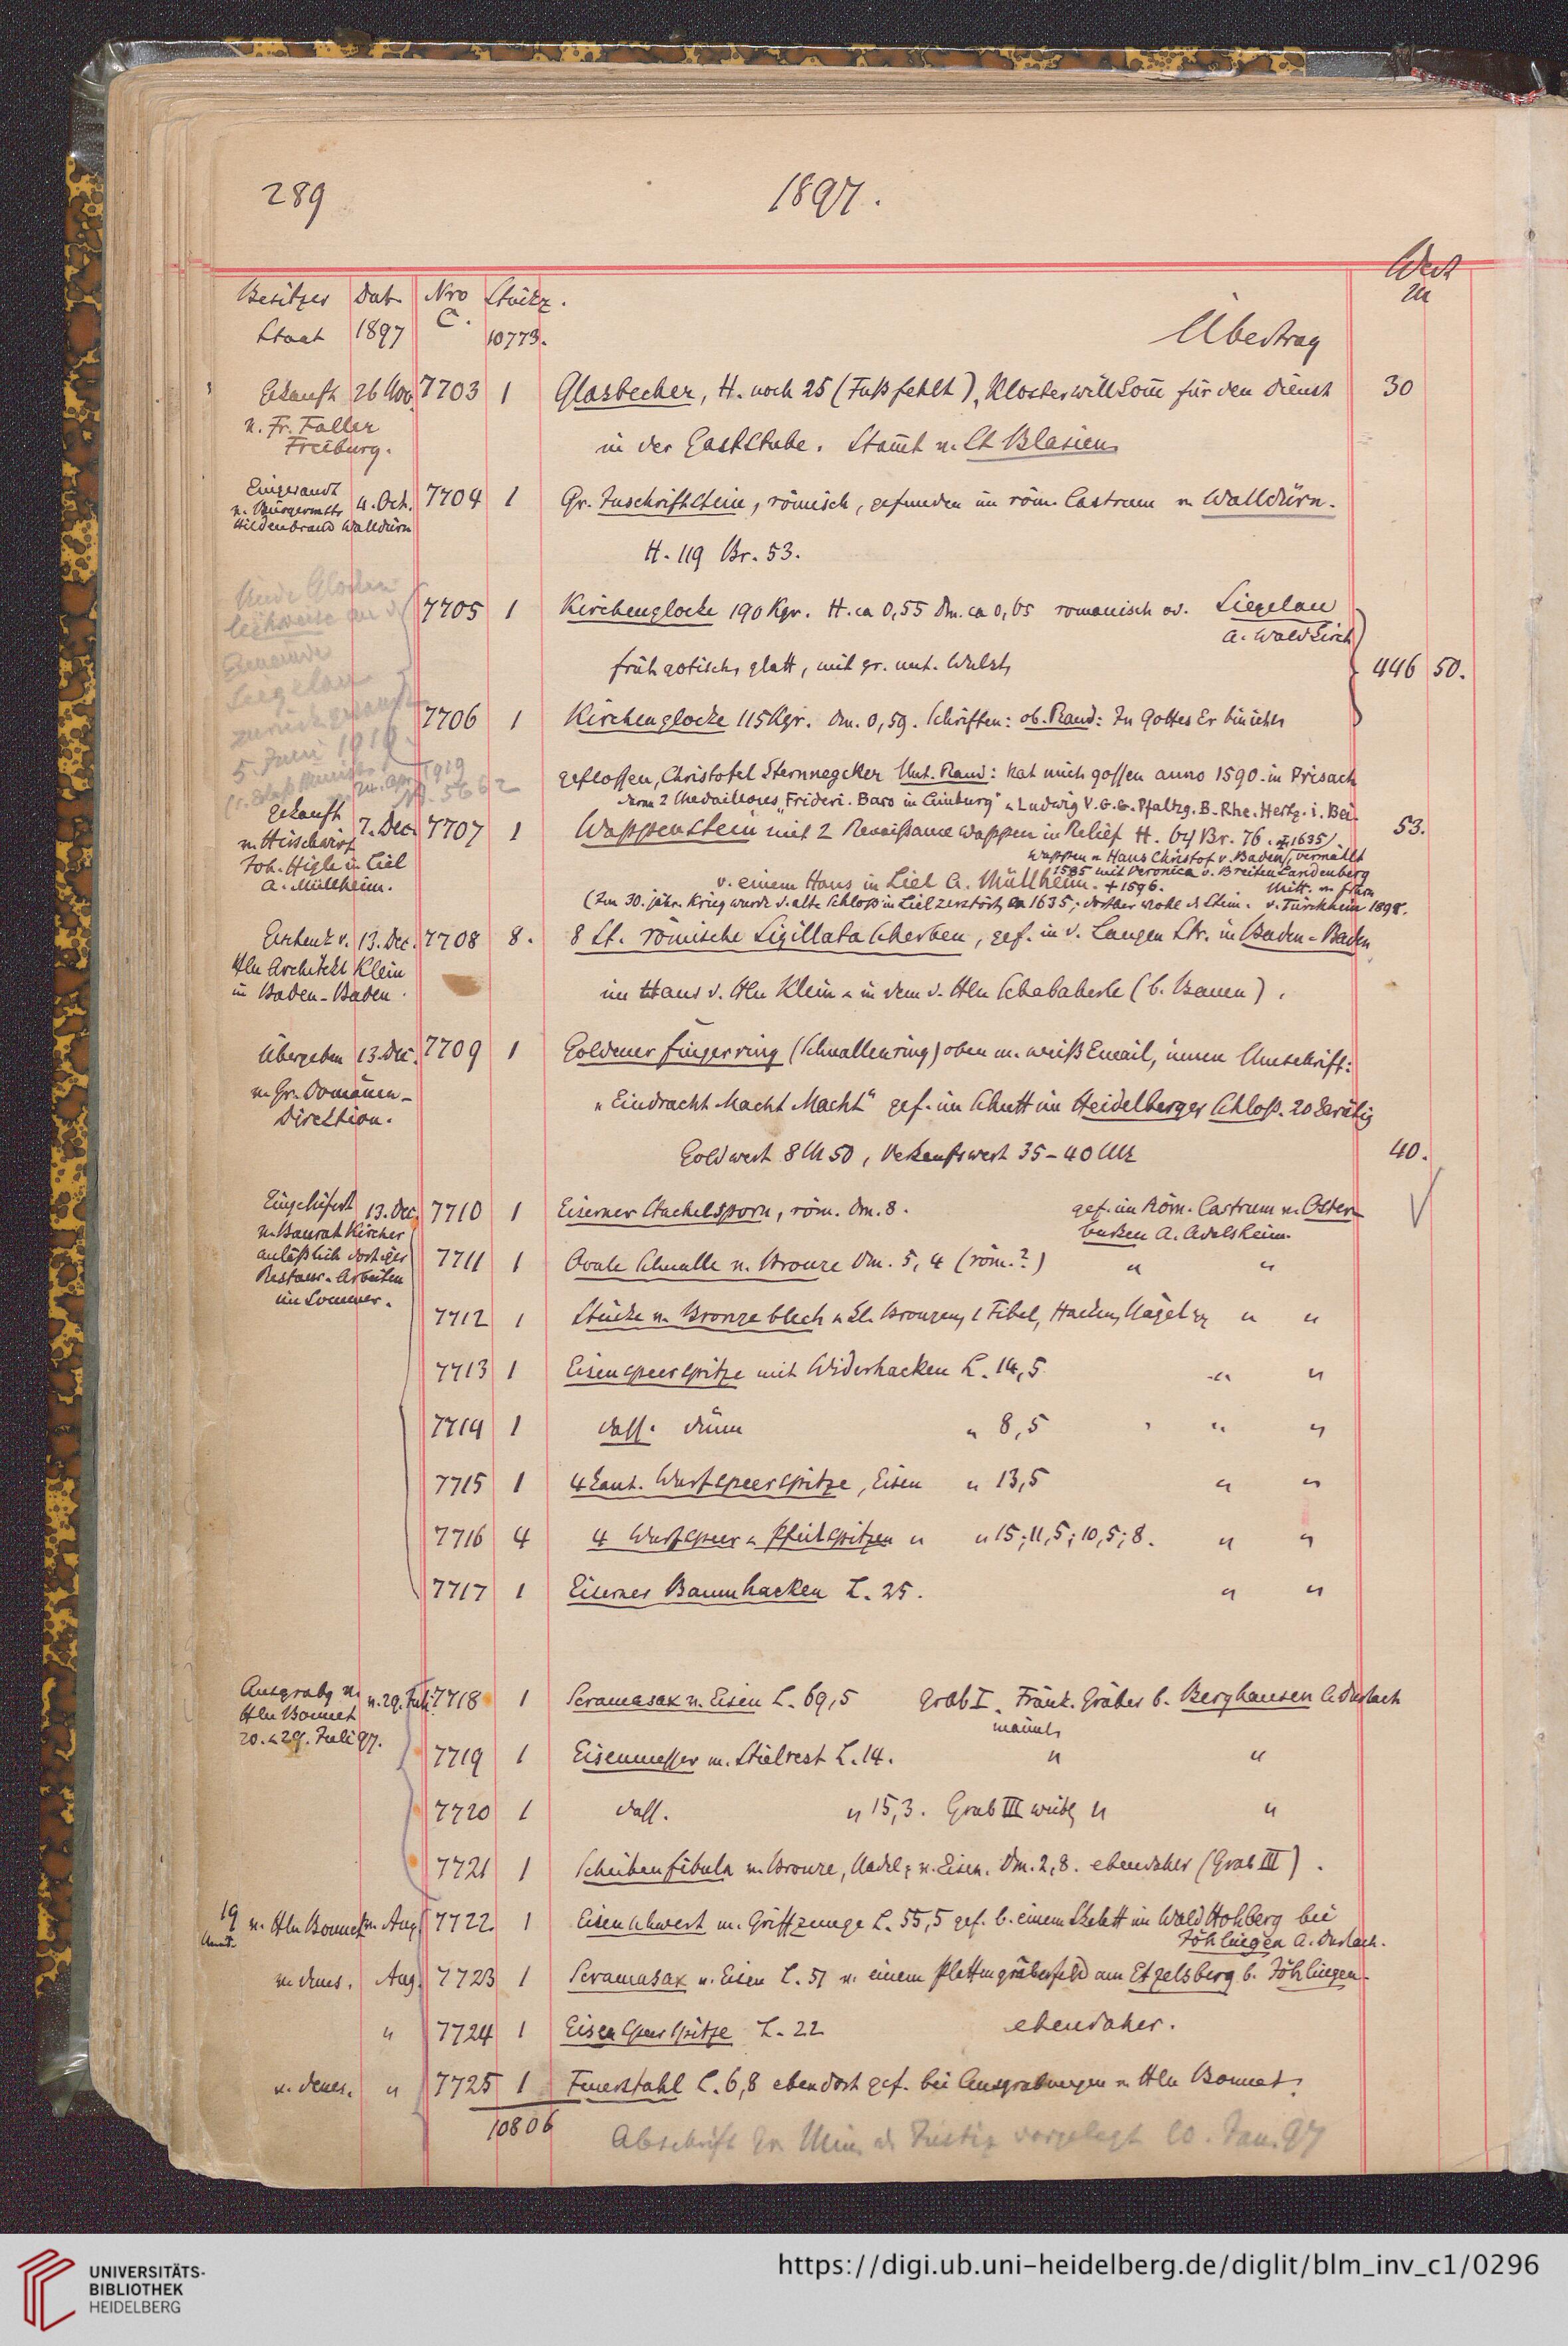 289
1897.
Wert
M
Besitzer Dat. Nro Stückz.
Staat 1897 C. 10773.
Übertrag
Gekauft 26 Nov. 7703 1 Glasbecher, H. noch 25 (Fuß fehlt), Kloster willkom̄ für den Dienst 30
v. Fr. Faller
Freiburg.
in der Gaststube. Stam̄t v. St Blasien
Eingesandt
v. Bürgermstr 4. Oct. 7704 1 Gr. Inschriftstein, römisch, gefunden im röm. Castrum v. Walldürn.
Hildenbrand Walldürn
H. 119 Br. 53.
Beide Glocken
leihweise an d.
Gemeinde
Siegelau
zurück
5. Juni 1919
7705 1 Kirchenglocke 190 Kgr. H. ca 0,55 Dm. ca 0,65 romanisch od. Siegelau
A. Waldkirch
frühgotisch, glatt, mit gr. unt. Wulst, 446 50.
7706 1 Kirchenglocke 115 Kgr. Dm. 0,59. Schriften: ob. Rand: In Gottes Er bin ich
geflossen, Christofel Sternnegcker Unt. Rand: hat mich gossen anno 1590. in Prisach
daran 2 Medaillons „Frideri. Baro in Limburg" u Ludwig V. G. G. Pfaltzg. B. Rhe. Hertz. i. Bei.
Gekauft
v. Hirschwirt 7. Dec. 7707 1 Wappenstein mit 2 Renaissance Wappen in Relief H. 64 Br. 76. 53.
Joh. Higle in Liel
A. Müllheim.
Wappen v. Hans Christof v. Baden, vermählt
1585 mit Veronica v. Breiten Landenberg
v. einem Haus in Liel A. Müllheim. † 1596. Mitt. v. Frhrn
(Im 30. jähr. Krieg wurde d. alte Schloß in Liel zerstört, 1635; dorther wohl d. Stein. v. Türckheim 1898.
Geschenk v. 13. Dec. 7708 8. 8 St. römische Sigillata Scherben, gef. in d. Langen Str. in Baden-Baden
Hln Architekt Klein
in Baden-Baden.
im Haus d. Hln Klein u in dem d. Hln Schababerle (b. Bauen).
Übergeben 13. Dec. 7709 1 Goldener Fingerring (Schnallenring) oben m. weiß Email, innen Umschrift:
v. Gr. Domänen-
Direktion.
„Eindracht Macht Macht" gef. im Schutt im Heidelberger Schloß. 20 Karätig
Goldwert 8 M 50, Verkaufswert 35-40 Mk 40.
Eingeliefert 13. Dec. 7710 1 Eiserner Stachelsporn, röm. Dm. 8. gef. im Röm. Castrum v. Oster-
v. Baurat Kircher
burken A. Adelsheim.
anläßlich dortiger 7711 1 Ovale Schnalle v. Bronze Dm. 5,4 (röm.?) " "
Restaur. Arbeiten
im Sommer. 7712 1 Stücke v. Bronzeblech u kl. Bronzen, 1 Fibel, Hacken, Nägel " "
7713 1 Eisenspeerspitze mit Widerhacken L. 14,5 " "
7714 1 dass. dünn " 8,5 " "
7715 1 4 kant. Wurfspeerspitze, Eisen " 13,5 " "
7716 4 4 Wurfspeer u Pfeilspitzen " " 15; 11,5; 10,5; 8. " "
7717 1 Eiserner Baumhacken L. 25. " "
Ausgrabg v. v. 29. Juli 7718 1 Scramasax v. Eisen L. 69,5 Grab I. Fränk. Gräber b. Berghausen A. Durlach
Hln Bonnet
20. u 29. Juli 97.
männl.
7719 1 Eisenmesser m. Stielrest L. 14. " "
7720 1 dass. " 15,3. Grab III weibl. " "
7721 1 Scheibenfibula v. Bronze, Nadel v. Eisen. Dm. 2,8. ebendaher (Grab III).
v. Hln Bonnet Aug. 7722 1 Eisenschwert m. Griffzunge L. 55,5 gef. b. einem Skelett im Wald Hohberg bei
Jöhlingen A. Durlach.
v. dems. Aug. 7723 1 Scramasax v. Eisen L. 51 v. einem Plattengräberfeld am Etzelsberg b. Jöhlingen.
" 7724 1 Eisenspeerspitze L. 22 ebendaher.
v. dems. " 7725 1 Feuerstahl L. 6,8 ebendort gef. bei Ausgrabungen v. Hln Bonnet.
10806
Abschrift Gr. Min. d. Justiz vorgelegt 20. Jan. 97
UNIVERSITÄTS-
BIBLIOTHEK
HEIDELBERG
https://digi.ub.uni-heidelberg.de/diglit/blm_inv_c1/0296